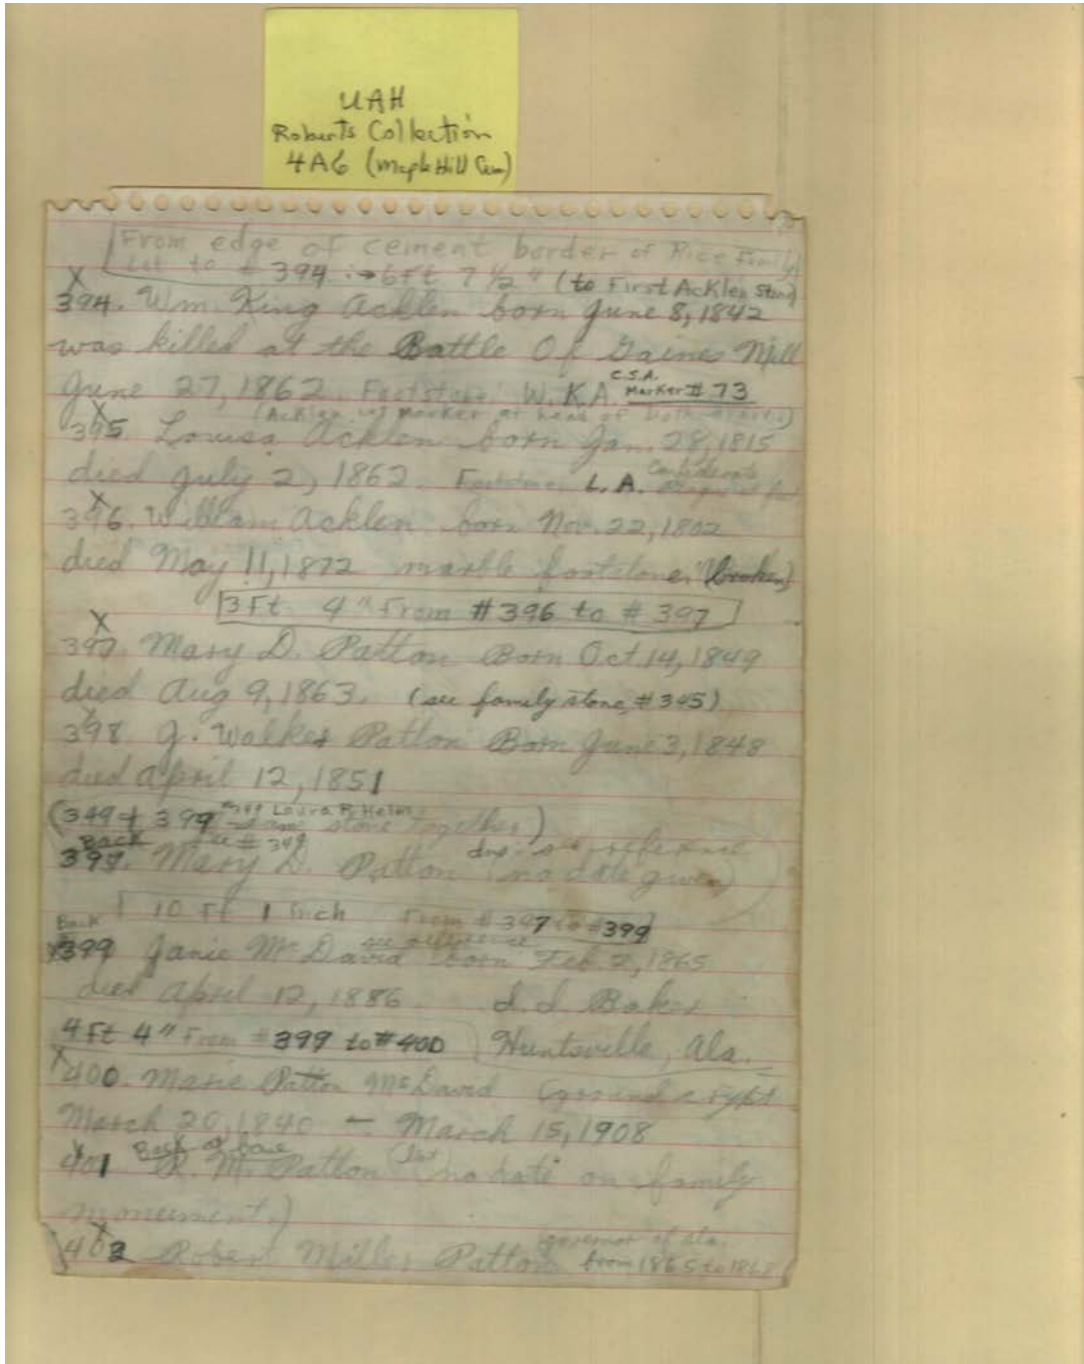 UAH
Roberts Collection
4A6 (Maple Hill Cem)
From edge of cement border of Rice Family
Lot to # 394 :→ 6 Ft 7 1/2 " (to First Acklen Stone)
394. Wm. King Acklen born June 8, 1842
was killed at the Battle Of Gaines Mill
C.S.A.
June 27, 1862. Footstone: W.K.A. Marker # 73
(Acklen w/ marker at head of both graves)
395. Louisa Acklen born Jan. 28, 1815
Confederate
died July 2, 1862. Footstone L.A.
396. William Acklen born Nov. 22, 1802
died May 11, 1872 marble footstone. (broken)
3 Ft 4 " From # 396 to # 397
397. Mary D. Patton Born Oct 14, 1849
died Aug 9, 1863. (see family stone, # 345)
398. J. Walker Patton Born June 3, 1848
died April 12, 1851
(349 + 399 Laura P. Helm
same stone together)
Back see # 349 dup. see reference
397. Mary D. Patton (no date given)
10 Ft 1 inch From # 397 to # 399
Back see reference
X399 Janie McDavid born Feb. 2, 1865
died April 12, 1886. Baker
4 Ft 4 " From # 399 to # 400 Huntsville, Ala.
400. Marie Patton McDavid (ground crypt
March 20, 1840 – March 15, 1908
Back of base
401 R. M. Patton (no date on family
monument.)
governor of Ala.
402 Robert Miller Patton from 1865 to 1868